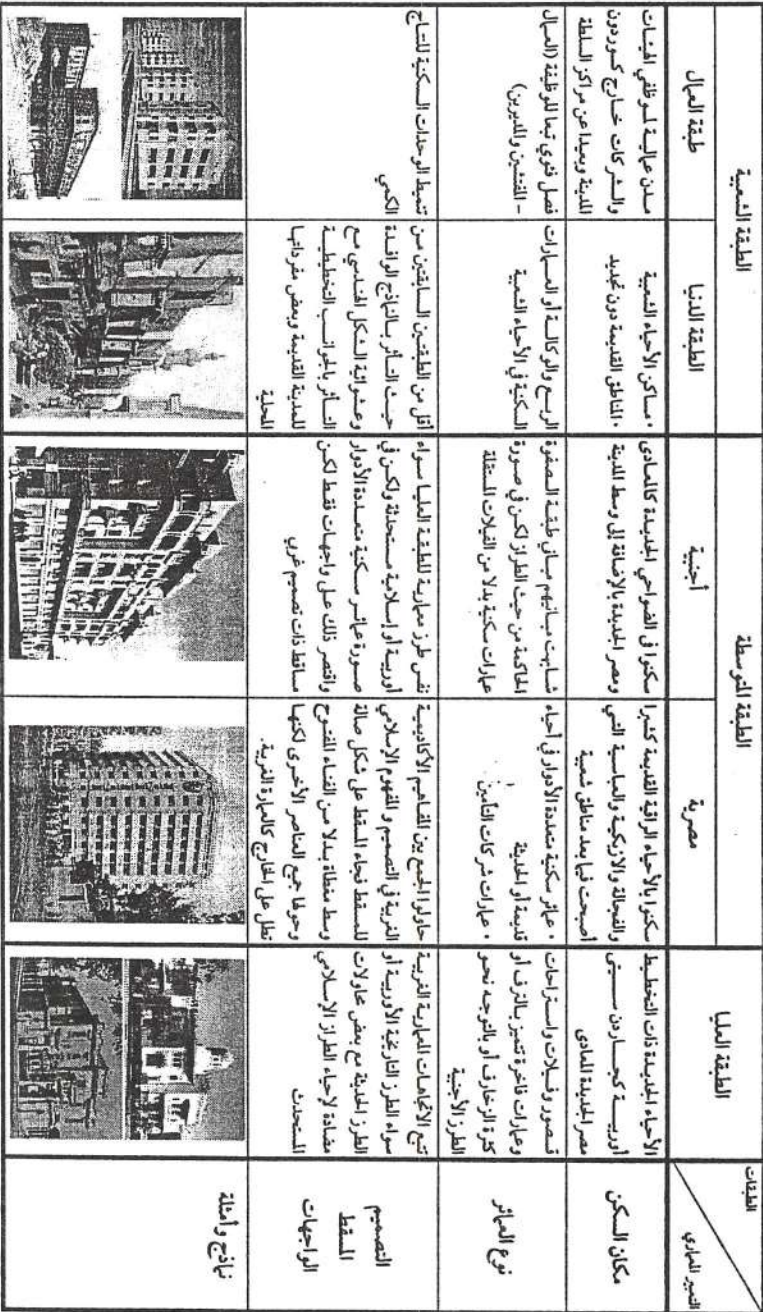 الطبقات
التعبير المعماري
الطبقة العليا
الطبقة المتوسطة
الطبقة الشعبية
مصرية
أجنبية
الطبقة الدنيا
طبقة العمال
مكان السكن
الأحياء الجديدة ذات التخطيط
أوربية كجاردن سيتى
مصر الجديدة المعادى
سكنوا بالأحياء الراقية القديمة كشبرا
والفجالة والازبكية والعباسية التي
أصبحت فيما بعد مناطق شعبية
سكنوا فى الضواحي الجديدة كالمعادى
ومصر الجديدة بالإضافة إلى وسط المدينة
• مساكن الأحياء الشعبية
• المناطق القديمة دون تجديد
مدن عمالية لموظفي الهيئات
والشركات خارج كوردون
المدينة وبعيدا عن مراكز السلطة
نوع العمائر
قصور وفيلات واستراحات
وعمارات فاخرة تتميز بالترف أو
كثرة الزخارف أو بالتوجه نحو
الطرز الأجنبية
• عمائر سكنية متعددة الأدوار في أحياء
قديمة أو الحديثة
• عمارات شركات التأمين
شابهت مبانيهم مباني طبقة الصفوة
الحاكمة من حيث الطراز لكن في صورة
عمارات سكنية بدلا من الفيلات المستقلة
الربع والوكالة أو العمارات
السكنية في الأحياء الشعبية
فصل فئوي تبعا للوظيفة (العمال
– المفتشين والمديرين)
التصميم
المسقط
الواجهات
تتبع الاتجاهات المعمارية الغربية
سواء الطرز التاريخية الأوربية أو
الطرز الحديثة مع بعض محاولات
مضادة لإحياء الطراز الإسلامي
المستحدث
حاولوا الجمع بين المفاهيم الأكاديمية
الغربية في التصميم و المفهوم الإسلامي
للمسقط فجاء المسقط على شكل صالة
وسط مغطاة بدلا من الفناء المفتوح
وحولها جميع العناصر الأخرى لكنها
تطل على الخارج كالعمارة الغربية.
نفس طرز معمارية للطبقة العليا سواء
أوربية أو إسلامية مستحدثة ولكن في
صورة عمائر سكنية متعددة الأدوار
واقتصر ذلك على واجهات فقط لكن
مساقط ذات تصميم غربي
أقل من الطبقتين السابقتين من
حيث التأثر بالنماذج الوافدة
وعشوائية الشكل الهندسي مع
التأثر بالجوانب التخطيطية
للمدينة القديمة وبعض مفرداتها
المحلية
تنميط الوحدات السكنية للنتاج
الكمي
نماذج وأمثلة